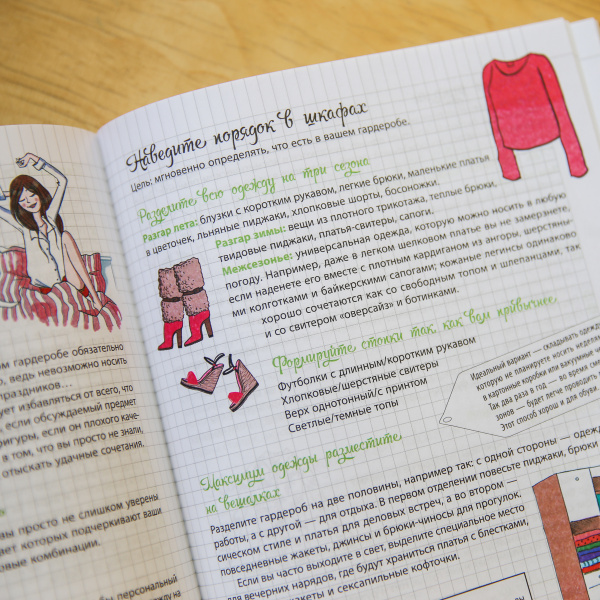 ом гардеробе обязательно
о, ведь невозможно носить
праздников...
ует избавляться от всего, что
, если обсуждаемый предмет
фигуры, если он плохо каче-
в том, что вы просто не знали,
отыскать удачные сочетания.
вы просто не слишком уверены
дет которых подчеркивают ваши
овые комбинации.
бы персональный
Наведите порядок в шкафах
Цель: мгновенно определять, что есть в вашем гардеробе.
Разделите всю одежду на три сезона
Разгар лета: блузки с коротким рукавом, легкие брюки, маленькие платья
в цветочек, льняные пиджаки, хлопковые шорты, босоножки.
Разгар зимы: вещи из плотного трикотажа, теплые брюки,
твидовые пиджаки, платья-свитеры, сапоги.
Межсезонье: универсальная одежда, которую можно носить в любую
погоду. Например, даже в легком шелковом платье вы не замерзнете,
если наденете его вместе с плотным кардиганом из ангоры, шерстяны-
ми колготками и байкерскими сапогами; кожаные легинсы одинаково
хорошо сочетаются как со свободным топом и шлепанцами, так
и со свитером «оверсайз» и ботинками.
Формируйте стопки так, как вам привычнее
Футболки с длинным/коротким рукавом
Хлопковые/шерстяные свитеры
Верх однотонный/с принтом
Светлые/темные топы
Идеальный вариант — складывать одежду,
которую не планируете носить неделями,
в картонные коробки или вакуумные
Так два раза в год — во время смены
зонов — будет легче проводить
Этот способ хорош и для обуви.
Максимум одежды разместите
на вешалках
Разделите гардероб на две половины, например так: с одной стороны — одежда
работы, а с другой — для отдыха. В первом отделении повесьте пиджаки, брюки
сическом стиле и платья для деловых встреч, а во втором —
повседневные жакеты, джинсы и брюки-чиносы для прогулок.
Если вы часто выходите в свет, выделите специальное место
для вечерних нарядов, где будут храниться платья с блестками,
жакеты и сексапильные кофточки.